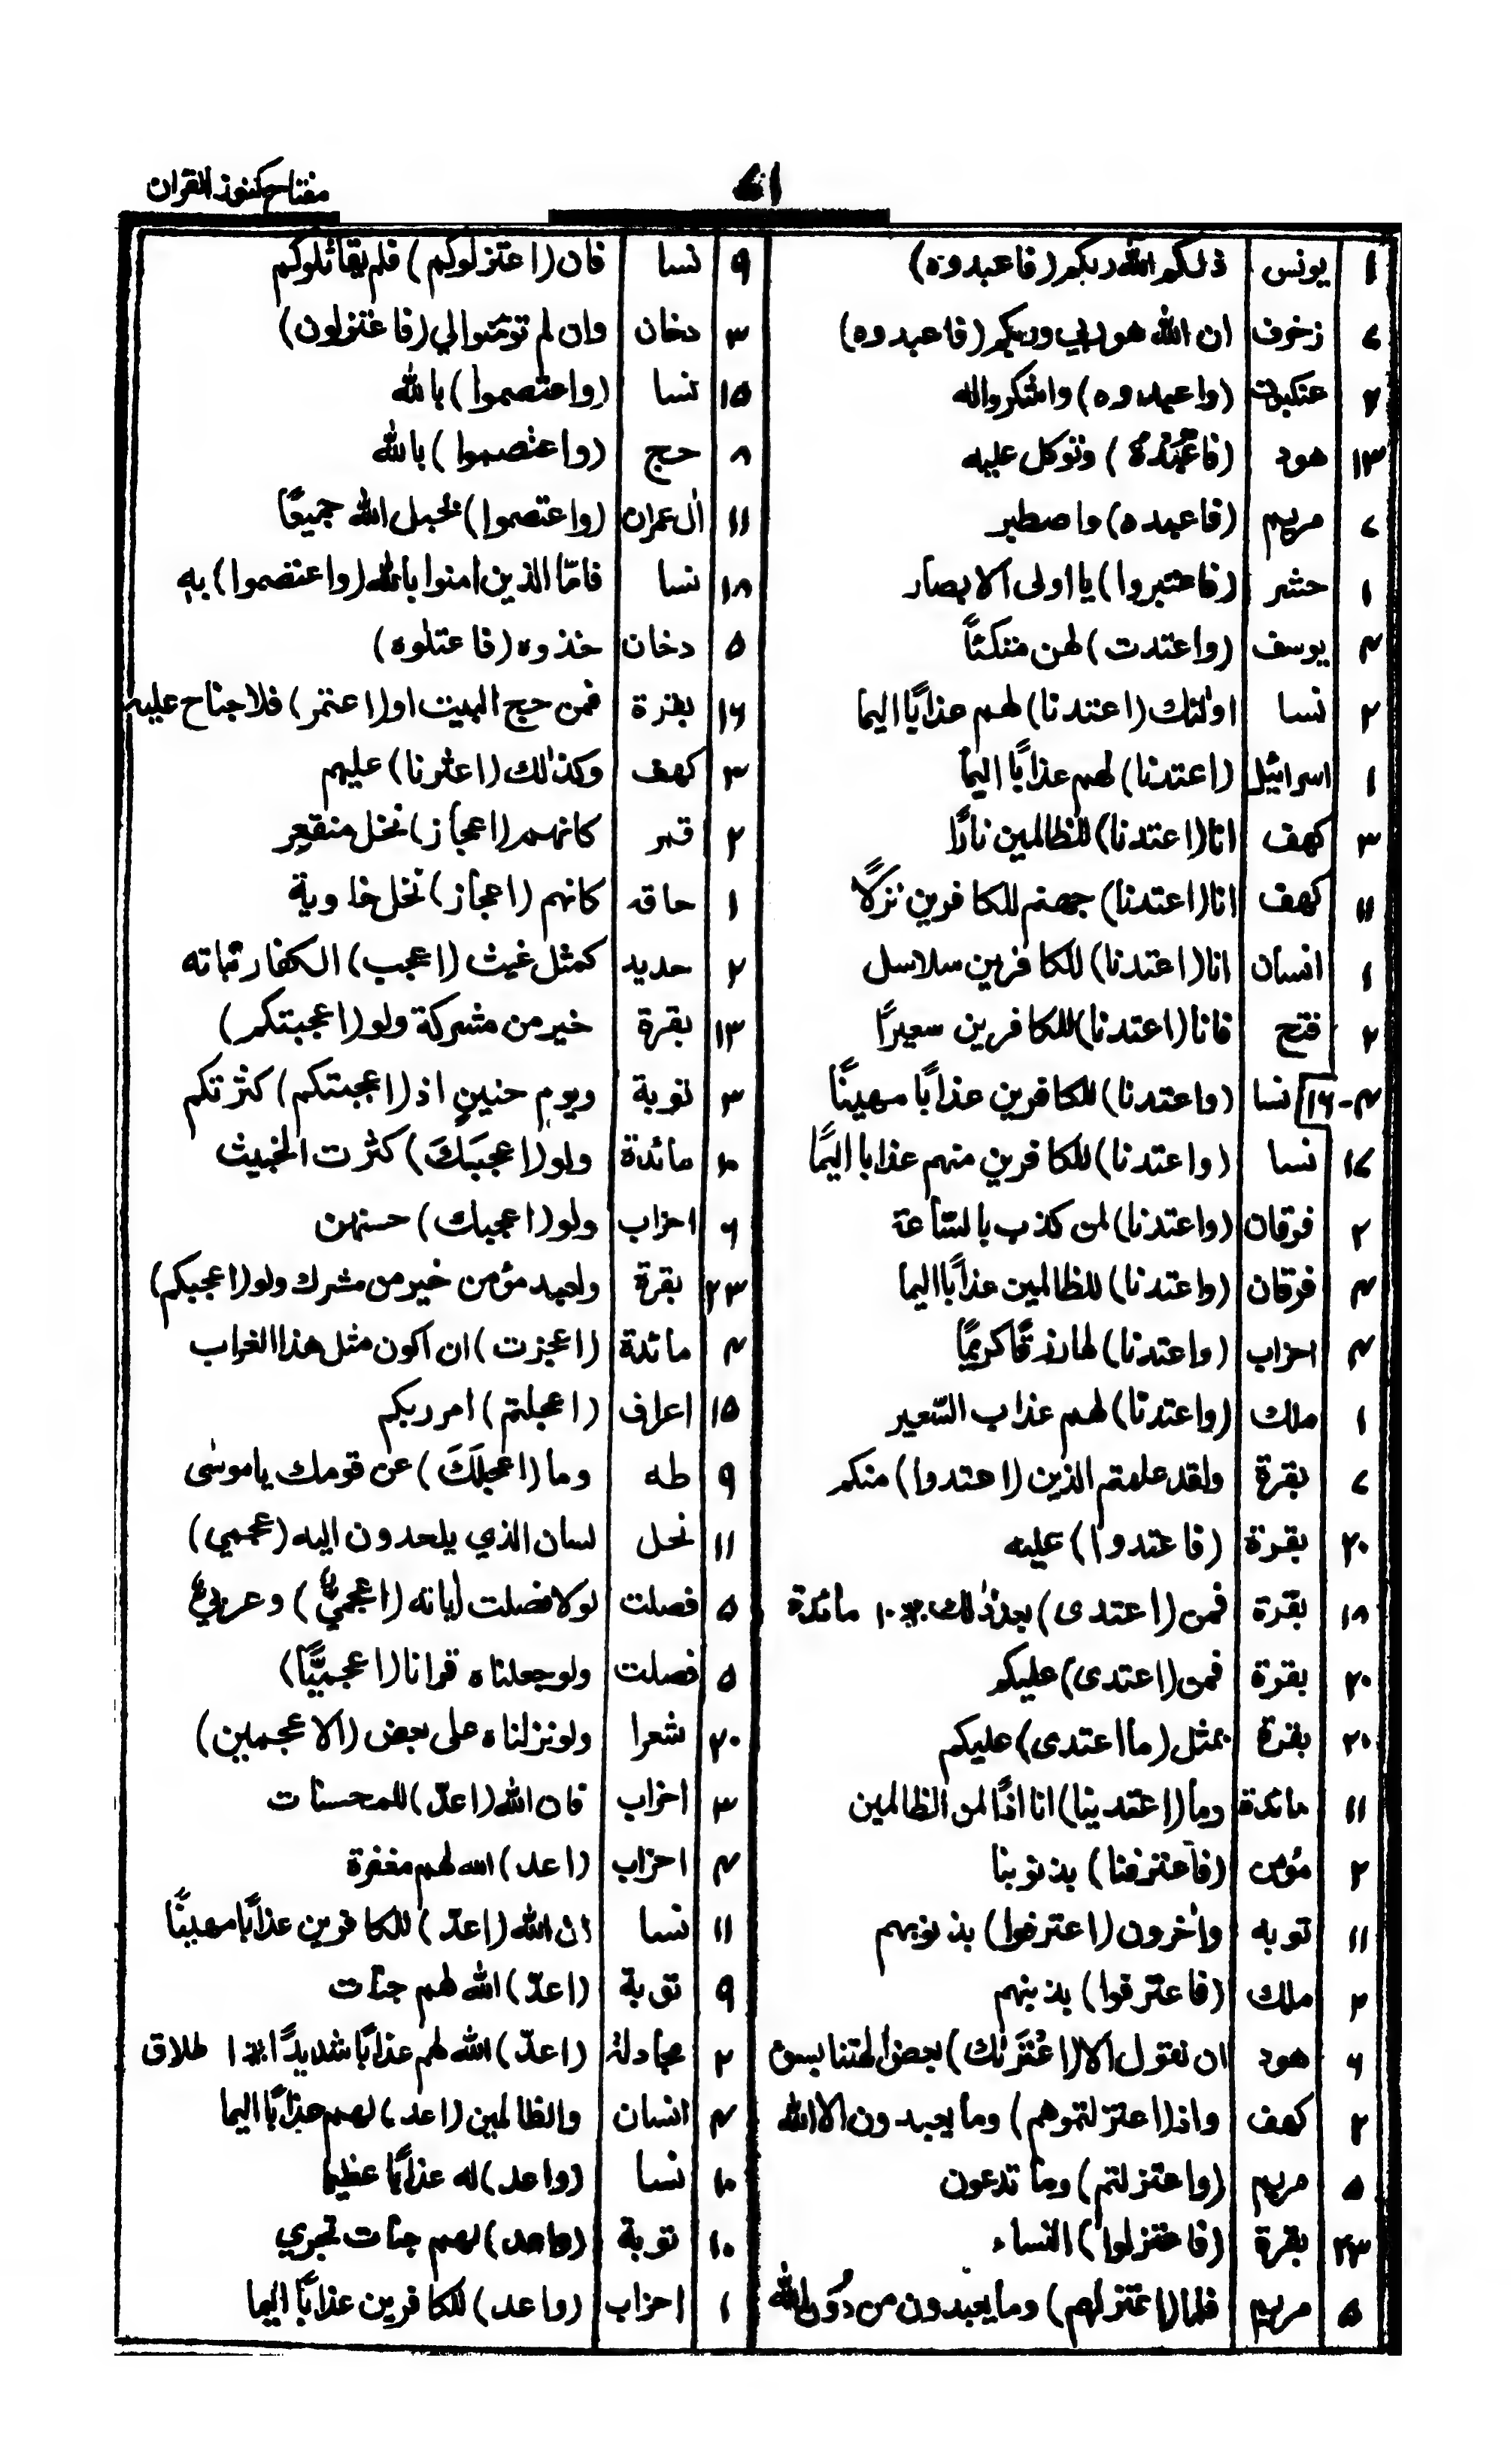 مفتاح كنوز القران
٤١
١ يونس ذلكم الله ربكم (فاعبدوه)
٧ زخرف ان الله هو ربي وربكم (فاعبدوه)
٢ عنكبوت (واعبدوه) واشكروا له
١٣ هود (فاعبده) وتوكل عليه
٧ مريم (فاعبده) واصطبر
١ حشر (فاعتبروا) يا اولى الابصار
٤ يوسف (واعتدت) لهن متكئاً
٢ نسا اولئك (اعتدنا) لهم عذابًا اليما
١ اسرائيل (اعتدنا) لهم عذابًا اليماً
٣ كهف انا (اعتدنا) للظالمين نارًا
١١ كهف انا (اعتدنا) جهنم للكافرين نزلًا
١ انسان انا (اعتدنا) للكافرين سلاسل
٢ فتح فانا (اعتدنا) للكافرين سعيرًا
٤-١٦ نسا (واعتدنا) للكافرين عذابًا مهينًا
١٧ نسا (واعتدنا) للكافرين منهم عذابا اليمًا
٢ فرقان (واعتدنا) لمن كذب بالسّاعة
٤ فرقان (واعتدنا) للظالمين عذابًا اليما
٤ احزاب (واعتدنا) لها رزقًا كريمًا
١ ملك (واعتدنا) لهم عذاب السّعير
٧ بقرة ولقد علمتم الذين (اعتدوا) منكم
٢٠ بقرة (فاعتدوا) عليه
١٨ بقرة فمن (اعتدى) بعد ذٰلك ١٠ مائدة
٢٠ بقرة فمن (اعتدى) عليكم
٢٠ بقرة بمثل (ما اعتدى) عليكم
١١ مائدة وما (اعتدينا) انا اذًا لمن الظالمين
٢ مؤمن (فاعترفنا) بذنوبنا
١١ توبه واٰخرون (اعترفوا) بذنوبهم
٢ ملك (فاعترفوا) بذنبهم
٦ هود ان نقول الا (اعْتَرَىٰك) بعض اٰلهتنا بسوء
٢ كهف واذ (اعتزلتموهم) وما يعبدون الا الله
٥ مريم (واعتزلتم) وما تدعون
٢٣ بقرة (فاعتزلوا) النساء
٥ مريم فلما (اعتزلهم) وما يعبدون من دُون الله
٩ نسا فان (اعتزلوكم) فلم يقاتلوكم
٣ دخان وان لم تؤمنوا لي (فاعتزلون)
١٥ نسا (واعتصموا) بالله
٨ حج (واعتصموا) بالله
١١ اٰل عمران (واعتصموا) بحبل الله جميعًا
١٨ نسا فامّا الذين امنوا بالله (واعتصموا) به
٥ دخان خذوه (فاعتلوه)
١٦ بقرة فمن حج البيت او (اعتمر) فلا جناح عليه
٣ كهف وكذٰلك (اعثرنا) عليهم
٢ قمر كانهم (اعجاز) نخل منقعر
١ حاقه كانهم (اعجاز) نخل خاوية
٢ حديد كمثل غيث (اعجب) الكفار نباته
١٣ بقرة خير من مشركة ولو (اعجبتكم)
٣ توبة ويوم حنينٍ اذ (اعجبتكم) كثرتكم
١٠ مائدة ولو (اعجبَكَ) كثرت الخبيث
٦ احزاب ولو (اعجبك) حسنهن
٢٣ بقرة ولعبد مؤمن خير من مشرك ولو (اعجبكم)
٤ مائدة (اعجزت) ان اكون مثل هذا الغراب
١٥ اعراف (اعجلتم) امر ربكم
٩ طه وما (اعجلَكَ) عن قومك ياموسٰى
١١ نحل لسان الذي يلحدون اليه (عجمي)
٥ فصلت لولا فصلت اٰياته (اعجميٌّ) وعربيٌّ
٥ فصلت ولو جعلناه قرانا (اعجميًّا)
٢٠ شعرا ولو نزلناه على بعض (الاعجمين)
٣ احزاب فان الله (اعدّ) للمحسنات
٤ احزاب (اعد) الله لهم مغفرة
١١ نسا ان الله (اعدّ) للكافرين عذابًا مهينًا
٩ توبة (اعدّ) الله لهم جنات
٢ مجادلة (اعدّ) الله لهم عذابًا شديدًا ١ طلاق
٤ انسان والظالمين (اعد) لهم عذابًا اليما
١٠ نسا (واعد) له عذابًا عظيما
١٠ توبة (واعد) لهم جنات تجري
١ احزاب (واعد) للكافرين عذابًا اليما